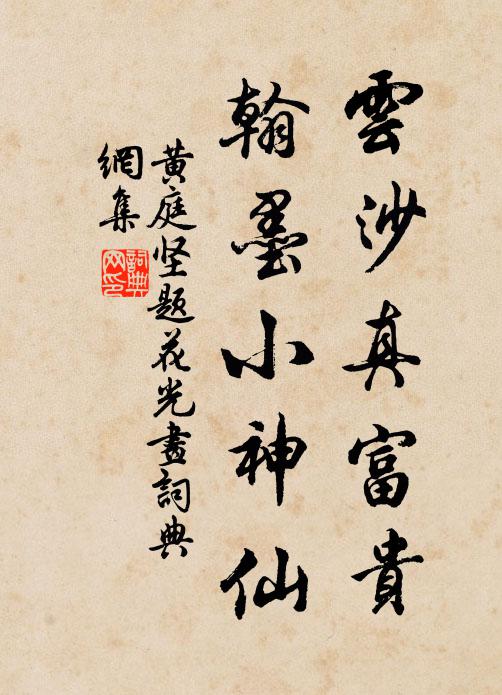 雲沙真富貴
翰墨小神仙
黄庭坚題花光畫詞典
網集
詞典網印